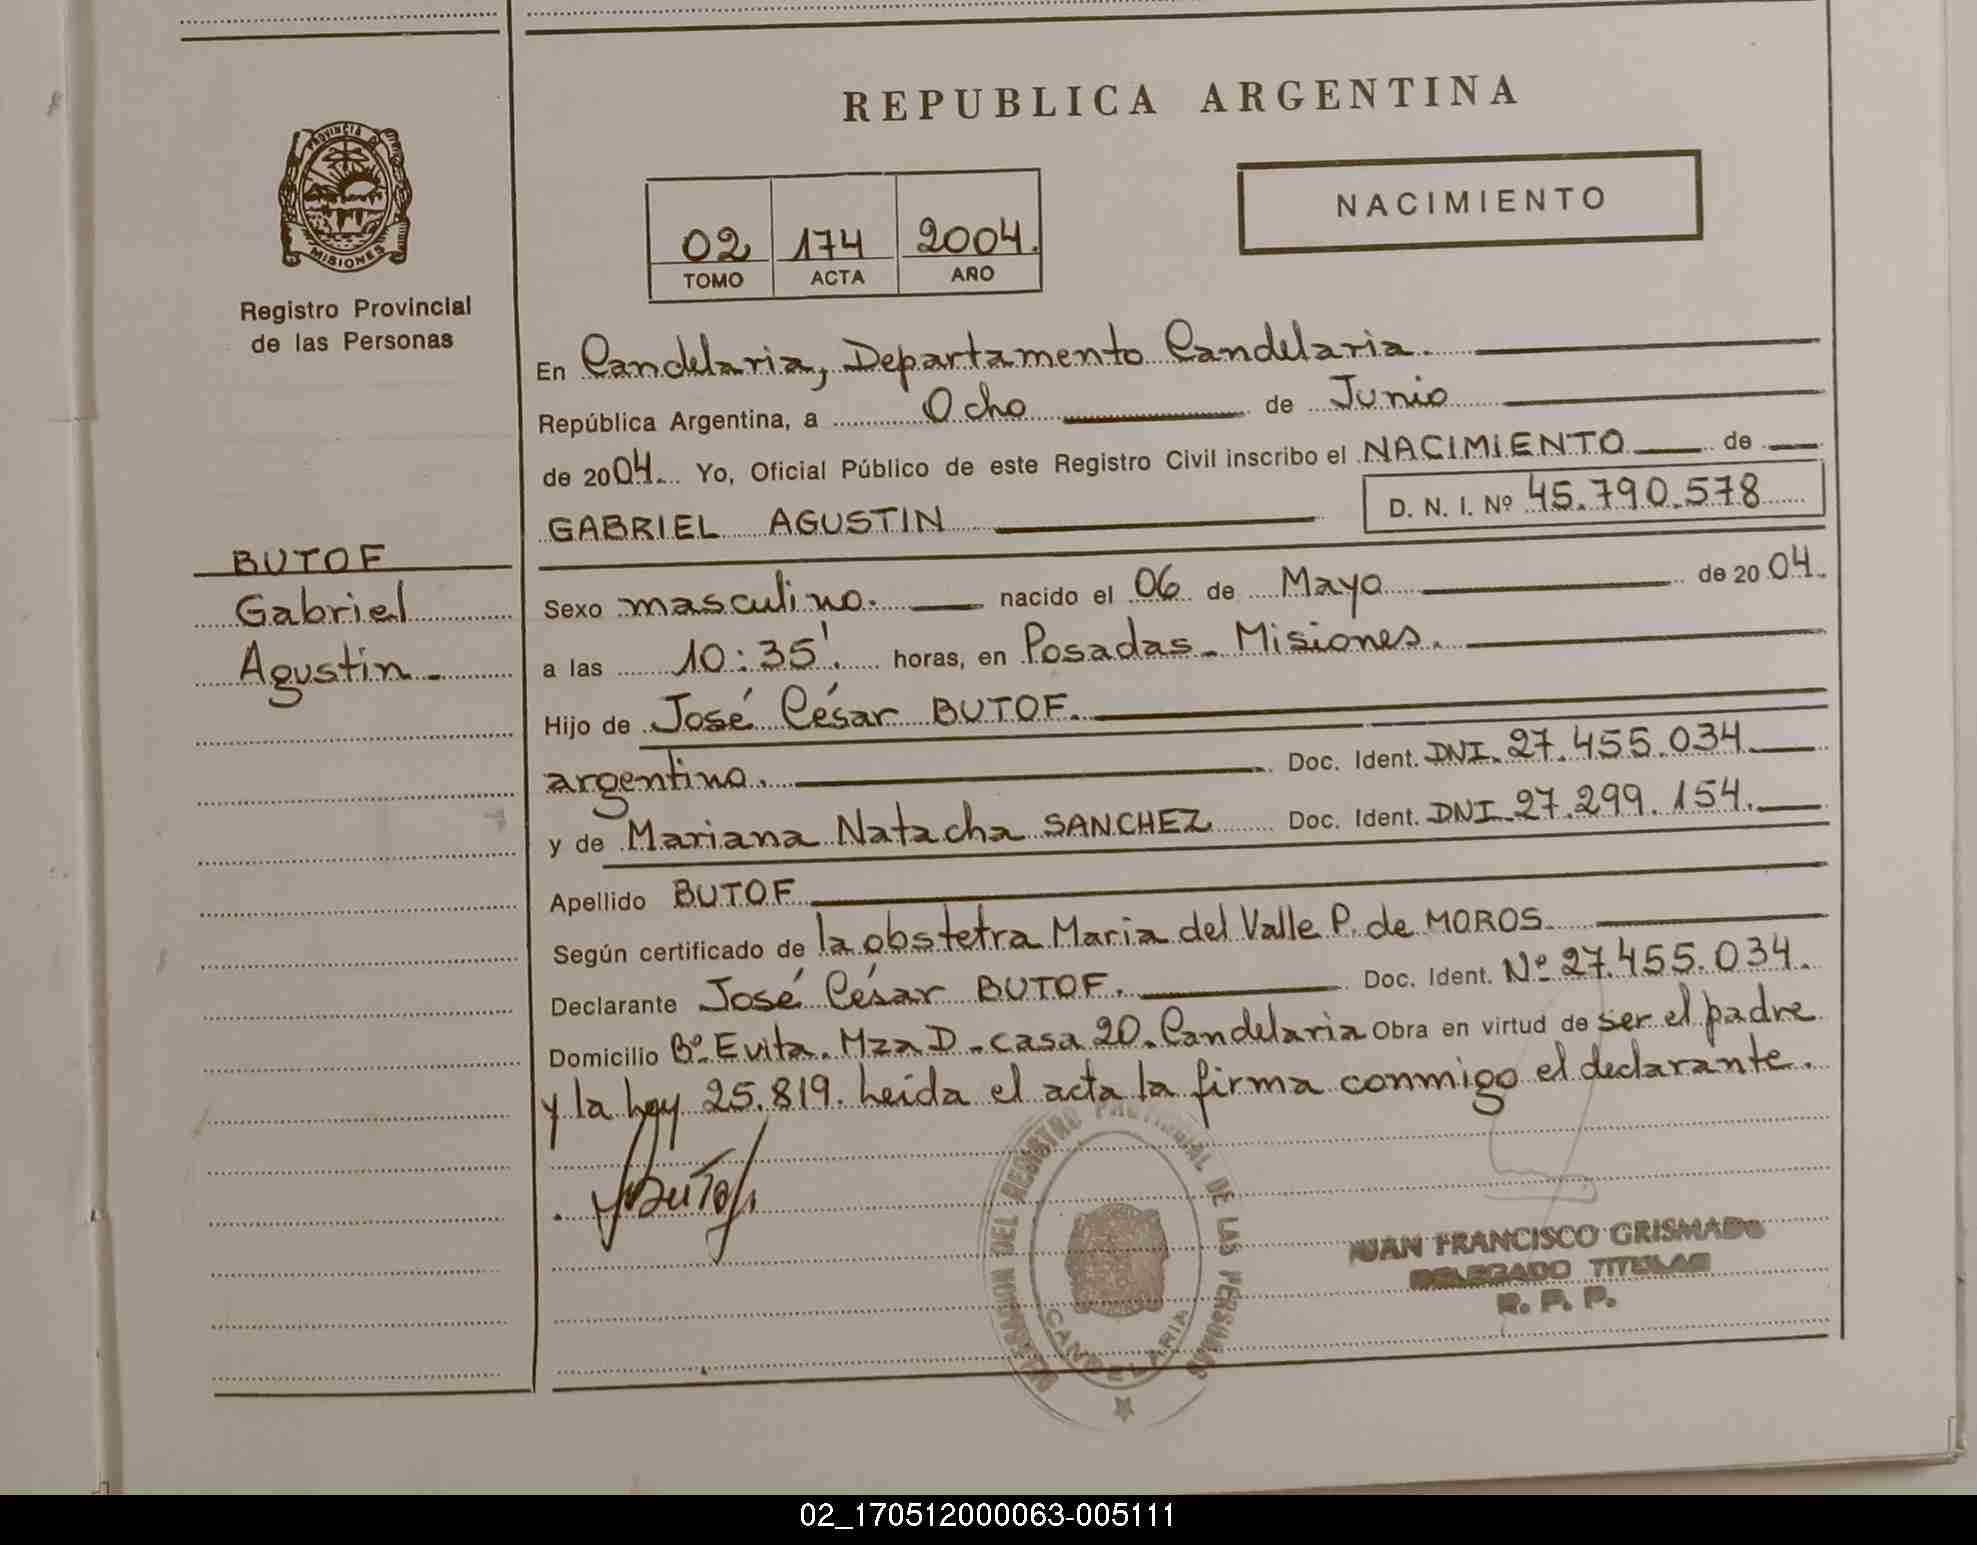 REPUBLICA ARGENTINA
PROVINCIA D
MISIONES
Registro Provincial
de las Personas
02 174 2004.
TOMO ACTA AÑO
NACIMIENTO
En Candelaria, Departamento Candelaria.
República Argentina, a Ocho de Junio
de 2004. Yo, Oficial Público de este Registro Civil inscribo el NACIMIENTO de
GABRIEL AGUSTIN D. N. I. Nº 45.790.578
BUTOF
Gabriel
Agustin
Sexo masculino. nacido el 06 de Mayo de 2004.
a las 10:35' horas, en Posadas - Misiones.
Hijo de José César BUTOF.
argentino. Doc. Ident. DNI. 27.455.034
y de Mariana Natacha SANCHEZ Doc. Ident. DNI. 27.299.154.
Apellido BUTOF
Según certificado de la obstetra Maria del Valle P. de MOROS.
Declarante José César BUTOF. Doc. Ident. Nº 27.455.034.
Domicilio Bº Evita. Mza D - casa 20. Candelaria Obra en virtud de ser el padre
y la ley 25.819. Leída el acta la firma conmigo el declarante.
Butof
DEL REGISTRO PROVINCIAL DE LAS PERSONAS
CANDELARIA
JUAN FRANCISCO GRISMADO
DELEGADO TITULAR
R. P. P.
02_170512000063-005111